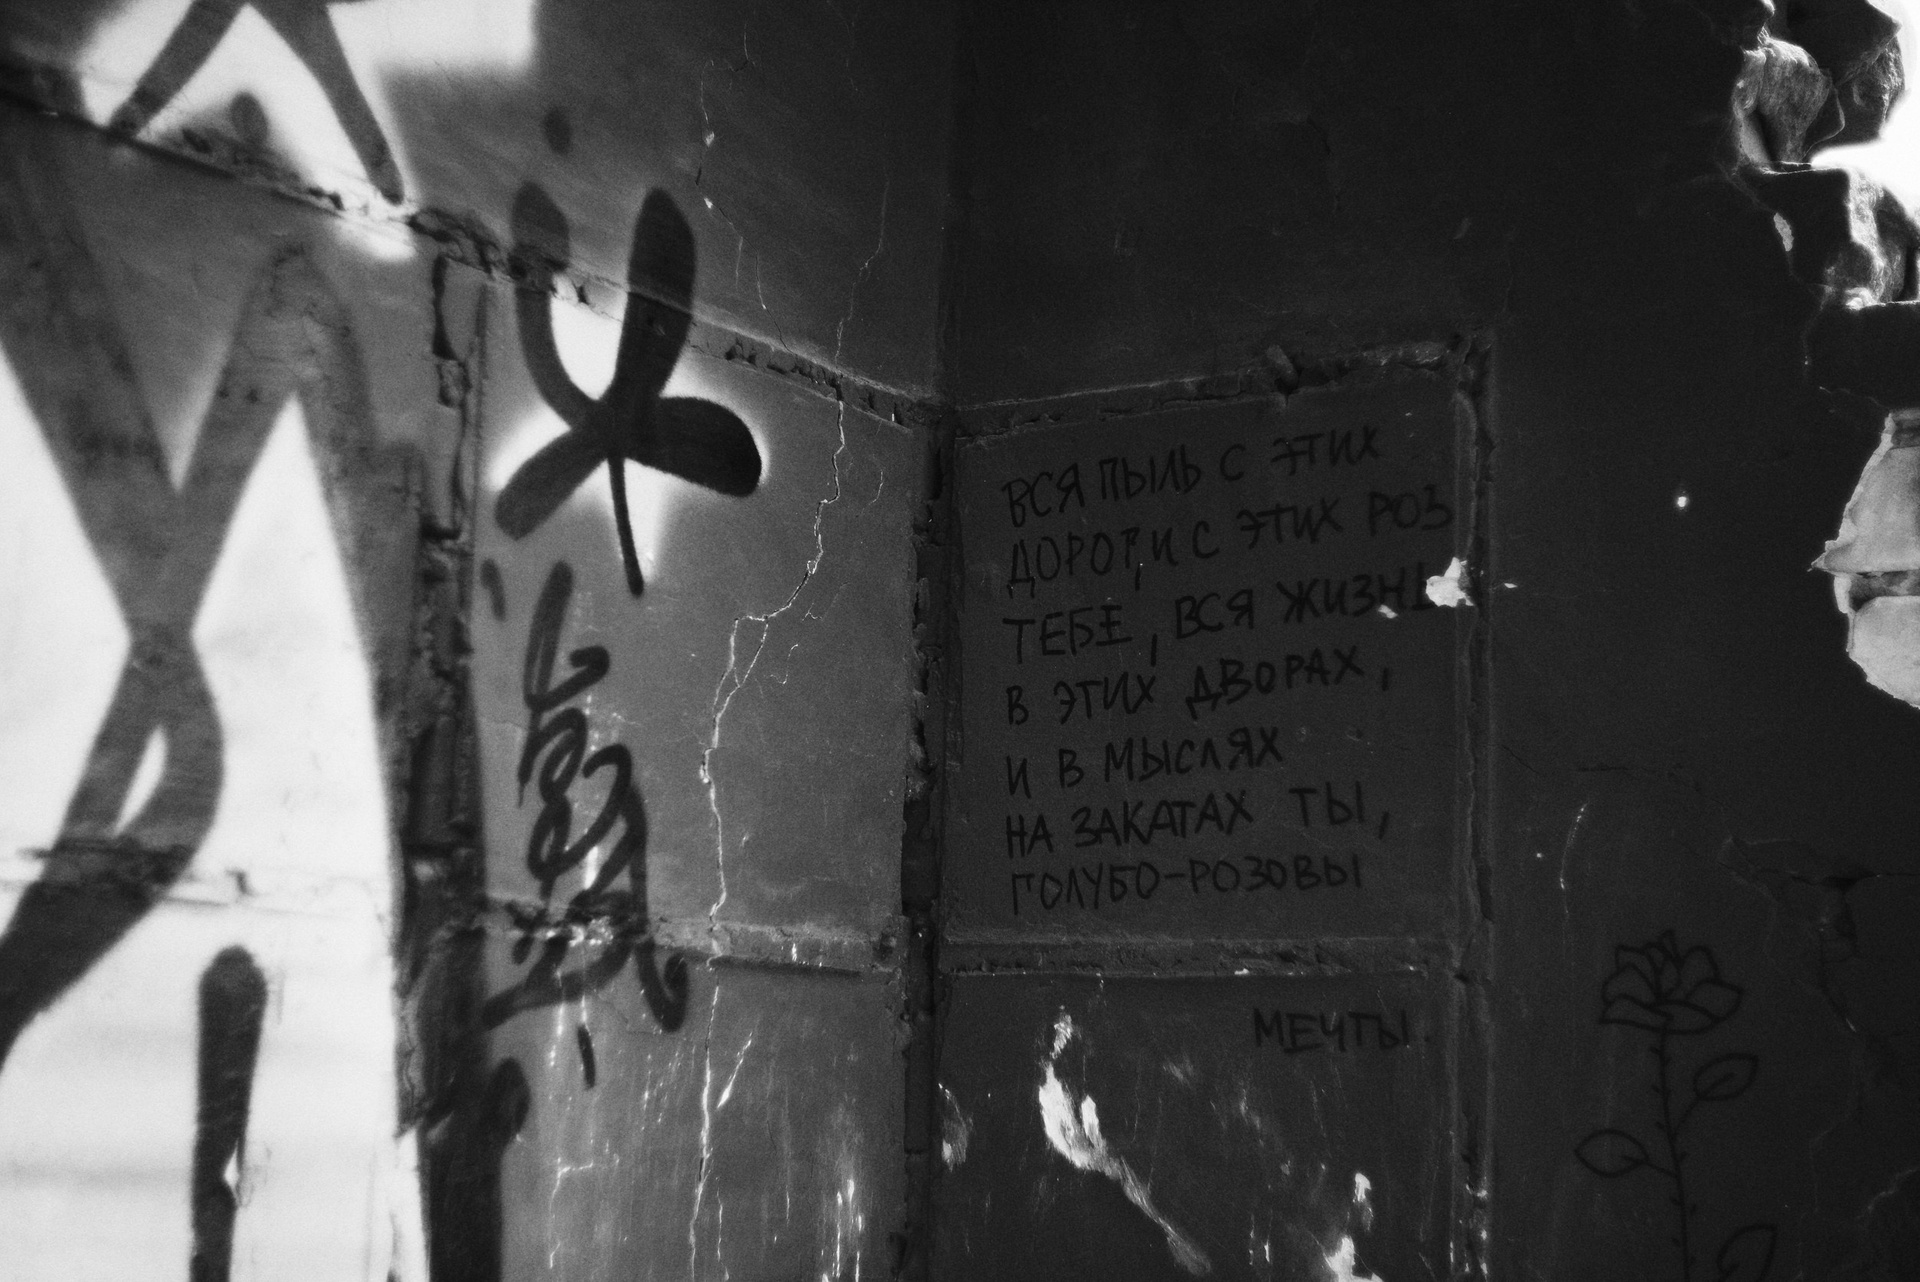 ВСЯ ПЫЛЬ С ЭТИХ
ДОРОГ, И С ЭТИХ РОЗ
ТЕБЕ, ВСЯ ЖИЗНЬ
В ЭТИХ ДВОРАХ,
И В МЫСЛЯХ
НА ЗАКАТАХ ТЫ,
ГОЛУБО-РОЗОВЫ
МЕЧТЫ.